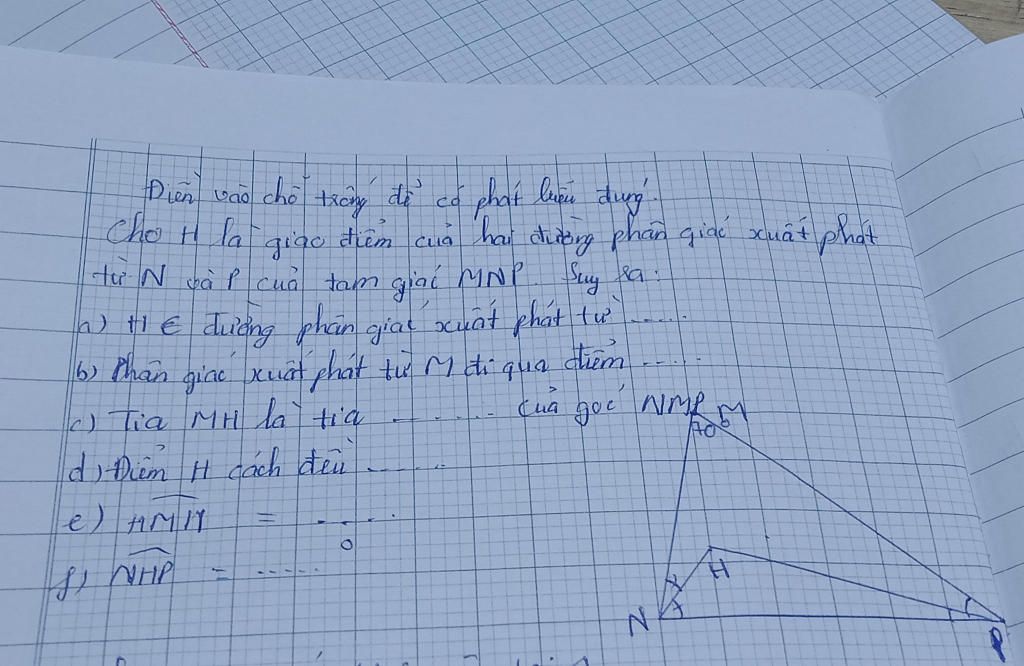 Điền vào chỗ trống để có phát biểu đúng.
Cho H là giao điểm của hai đường phân giác xuất phát
từ N và P của tam giác MNP. Suy ra:
a) H ∈ đường phân giác xuất phát từ ......
b) Phân giác xuất phát từ M đi qua điểm ......
c) Tia MH là tia ........ của góc NMP
d) Điểm H cách đều ......
e) HMN = ......
f) NHP = ......
M
70°
H
N
P